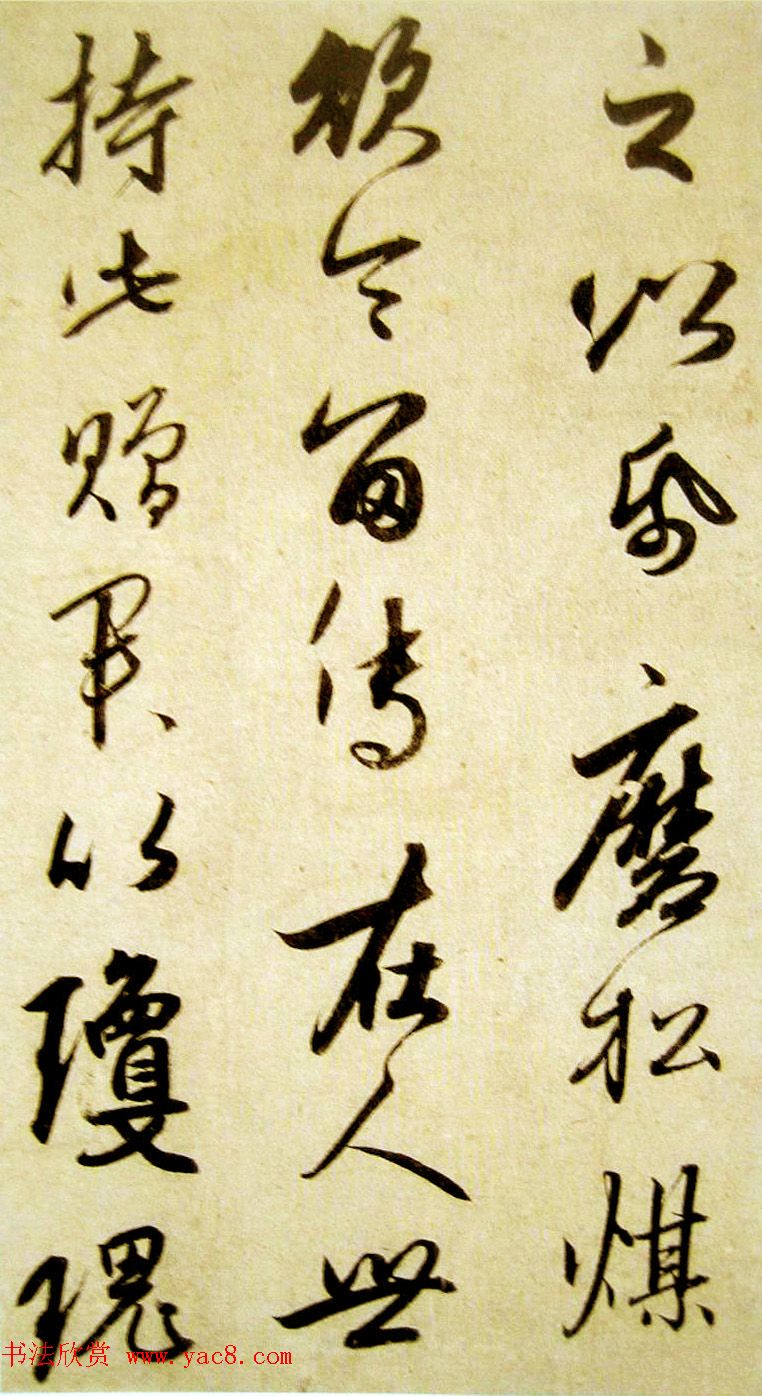 之以帋磨松煤
欲令留傳在人世
持此贈畀以瓊瑰
书法欣赏 www.yac8.com